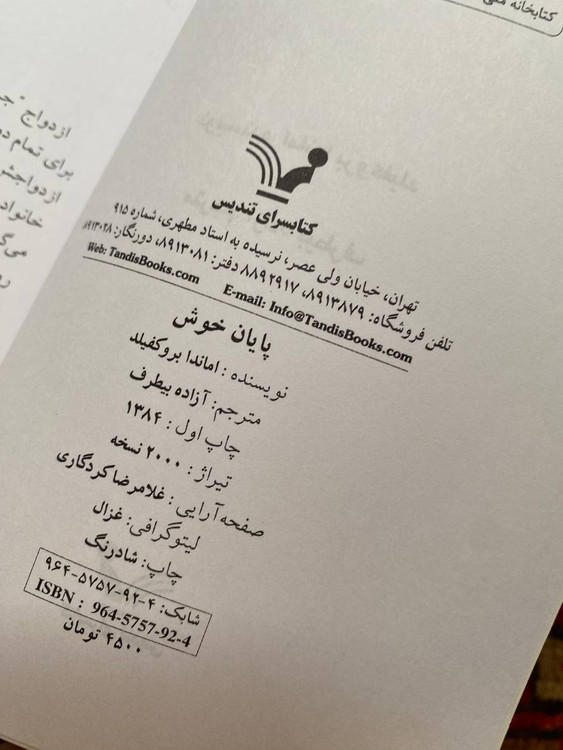 کتابخانه
ازدواج
برای تمام
خانواد
کتابسرای تندیس
تهران، خیابان ولی عصر، نرسیده به استاد مطهری، شماره ۹۱۵
تلفن فروشگاه: ۸۸۹۲۹۱۷، ۸۹۱۳۸۷۹ دفتر: ۸۹۱۳۰۸۱، دورنگار: ۸۹۱۳۰۲۸
Web: TandisBooks.com E-mail: Info@TandisBooks.com
پایان خوش
نویسنده : اماندا بروکفیلد
مترجم: آزاده بیطرف
چاپ اول : ۱۳۸۴
تیراژ : ۲۰۰۰ نسخه
صفحه‌آرایی : غلامرضا کردگاری
لیتوگرافی: غزال
چاپ: شادرنگ
شابک: ۴-۹۲-۵۷۵۷-۹۶۴
ISBN : 964-5757-92-4
۴۵۰۰ تومان